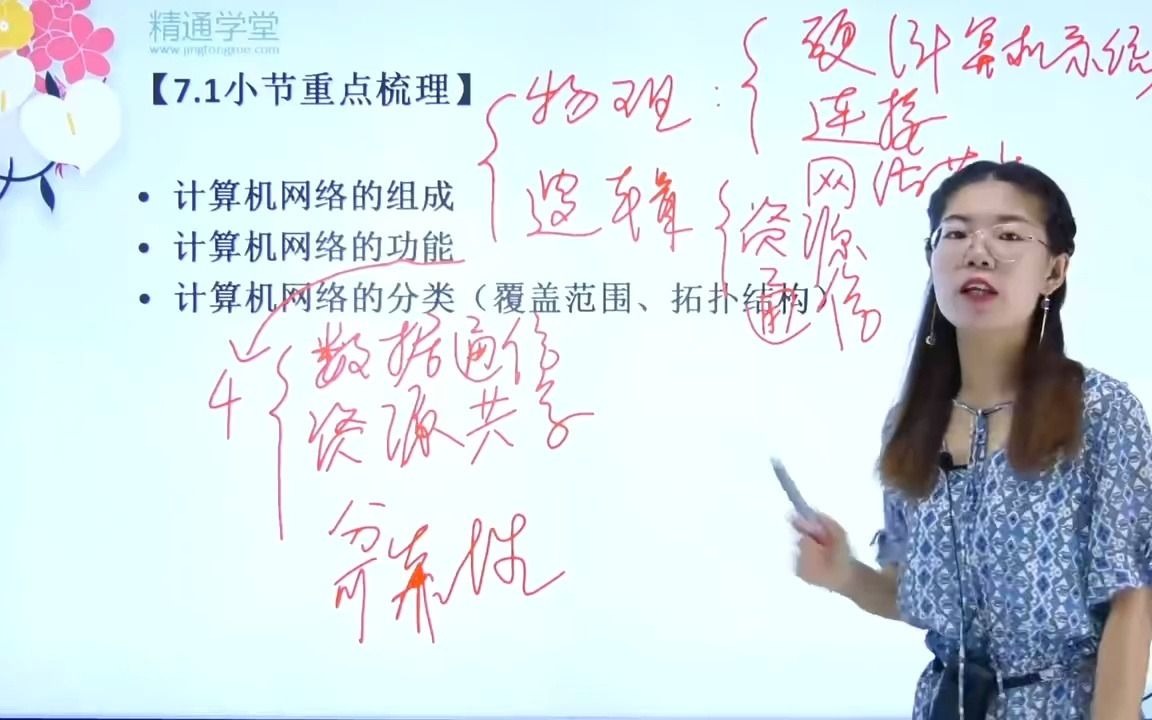 精通学堂
www.jingtongxue.com
【7.1小节重点梳理】
• 计算机网络的组成
• 计算机网络的功能
• 计算机网络的分类（覆盖范围、拓扑结构）
物理：
硬（计算机系统
连接
网
逻辑
资源
通信
4
数据通信
资源共享
分
可靠性